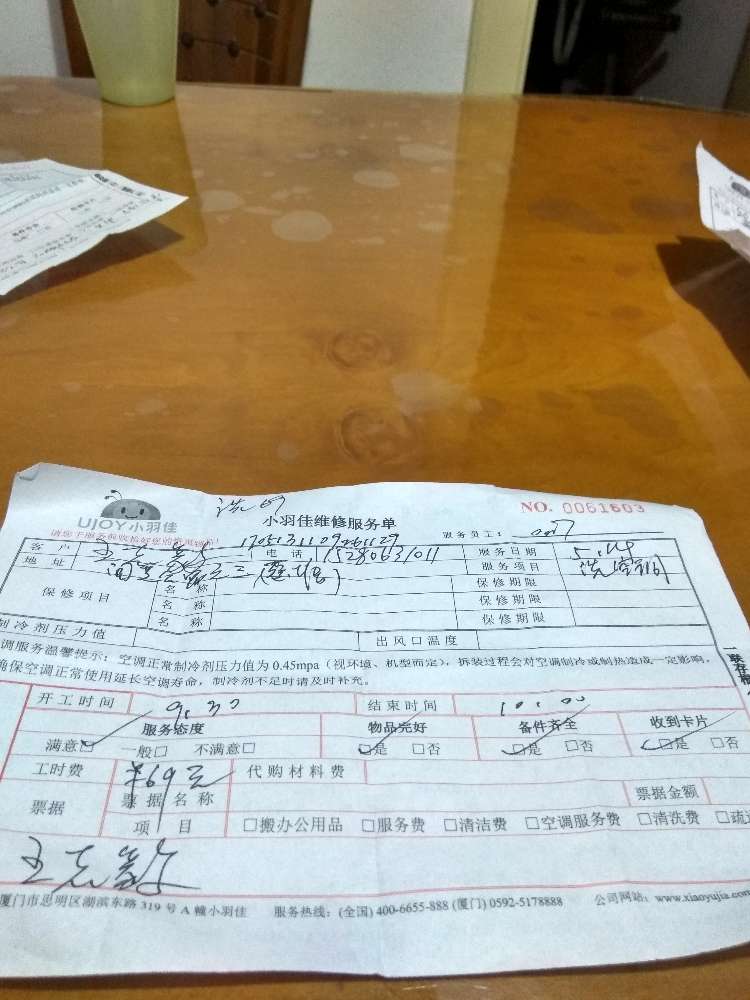 洗
UJOY小羽佳
小羽佳维修服务单
NO. 0061603
服务员工：
客户
电话 15280631011
服务日期 5.14
地址
服务项目 洗空调
保修项目
名称
保修期限
名称
保修期限
名称
保修期限
制冷剂压力值
出风口温度
调服务温馨提示：空调正常制冷剂压力值为 0.45mpa（视环境、机型而定），拆装过程会对空调制冷或制热造成一定影响，
确保空调正常使用延长空调寿命，制冷剂不足时请及时补充。
一联存根
开工时间 9:30 结束时间 10:00
服务态度 物品完好 备件齐全 收到卡片
满意☑ 一般□ 不满意□ ☑是 □否 ☑是 □否 ☑是 □否
工时费 ¥69元 代购材料费
票据
票据名称
票据金额
项目 □搬办公用品 □服务费 □清洁费 □空调服务费 □清洗费 □疏
厦门市思明区湖滨东路 319 号 A 幢小羽佳 服务热线：(全国) 400-6655-888 (厦门) 0592-5178888 公司网站：www.xiaoyujia.com